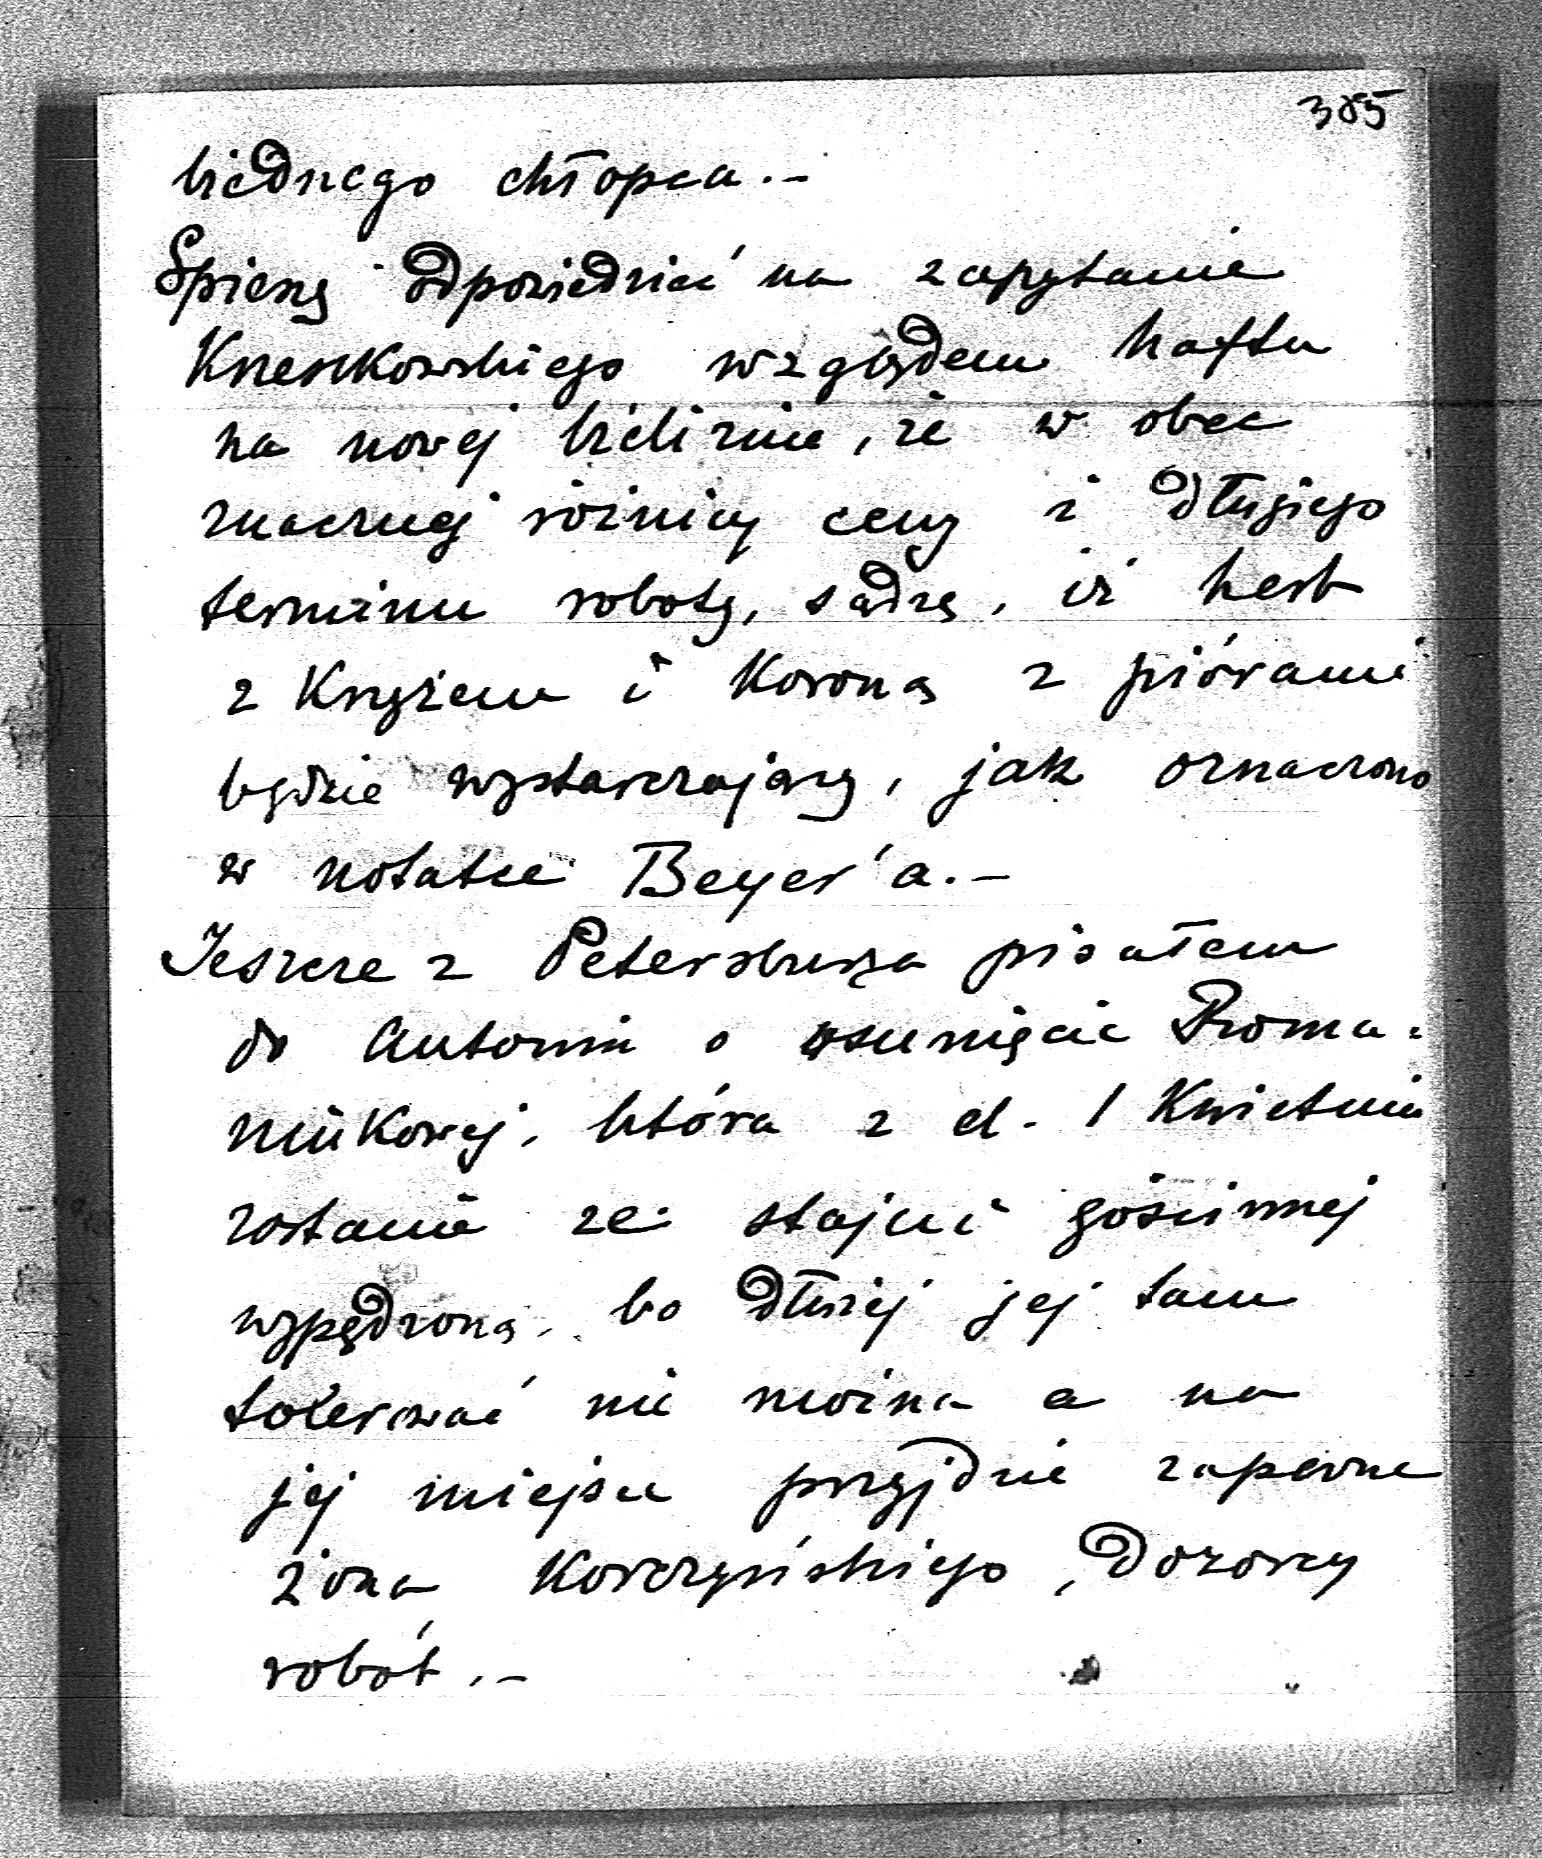 385
biednego chłopca.-
Spieszę odpowiedzieć na zapytanie
względem haftu
na nowej bieliznie, że w obec
znacznej różnicy ceny i długiego
terminu roboty, sądzę, iż herb
z Krzyżem i Koroną z piórami
będzie wystarczający, jak oznaczono
w notatce Beyer'a.-
Jeszcze z Petersburga pisałem
do Antonin o usunięcie Roma-
niukowej, która z d. 1 Kwietnia
zostanie ze stajni gościnnej
wypędzoną, bo dłużej jej tam
tolerować nie można a na
jej miejsce przyjdzie zapewne
żona Korczyńskiego, dozorcy
robót.-